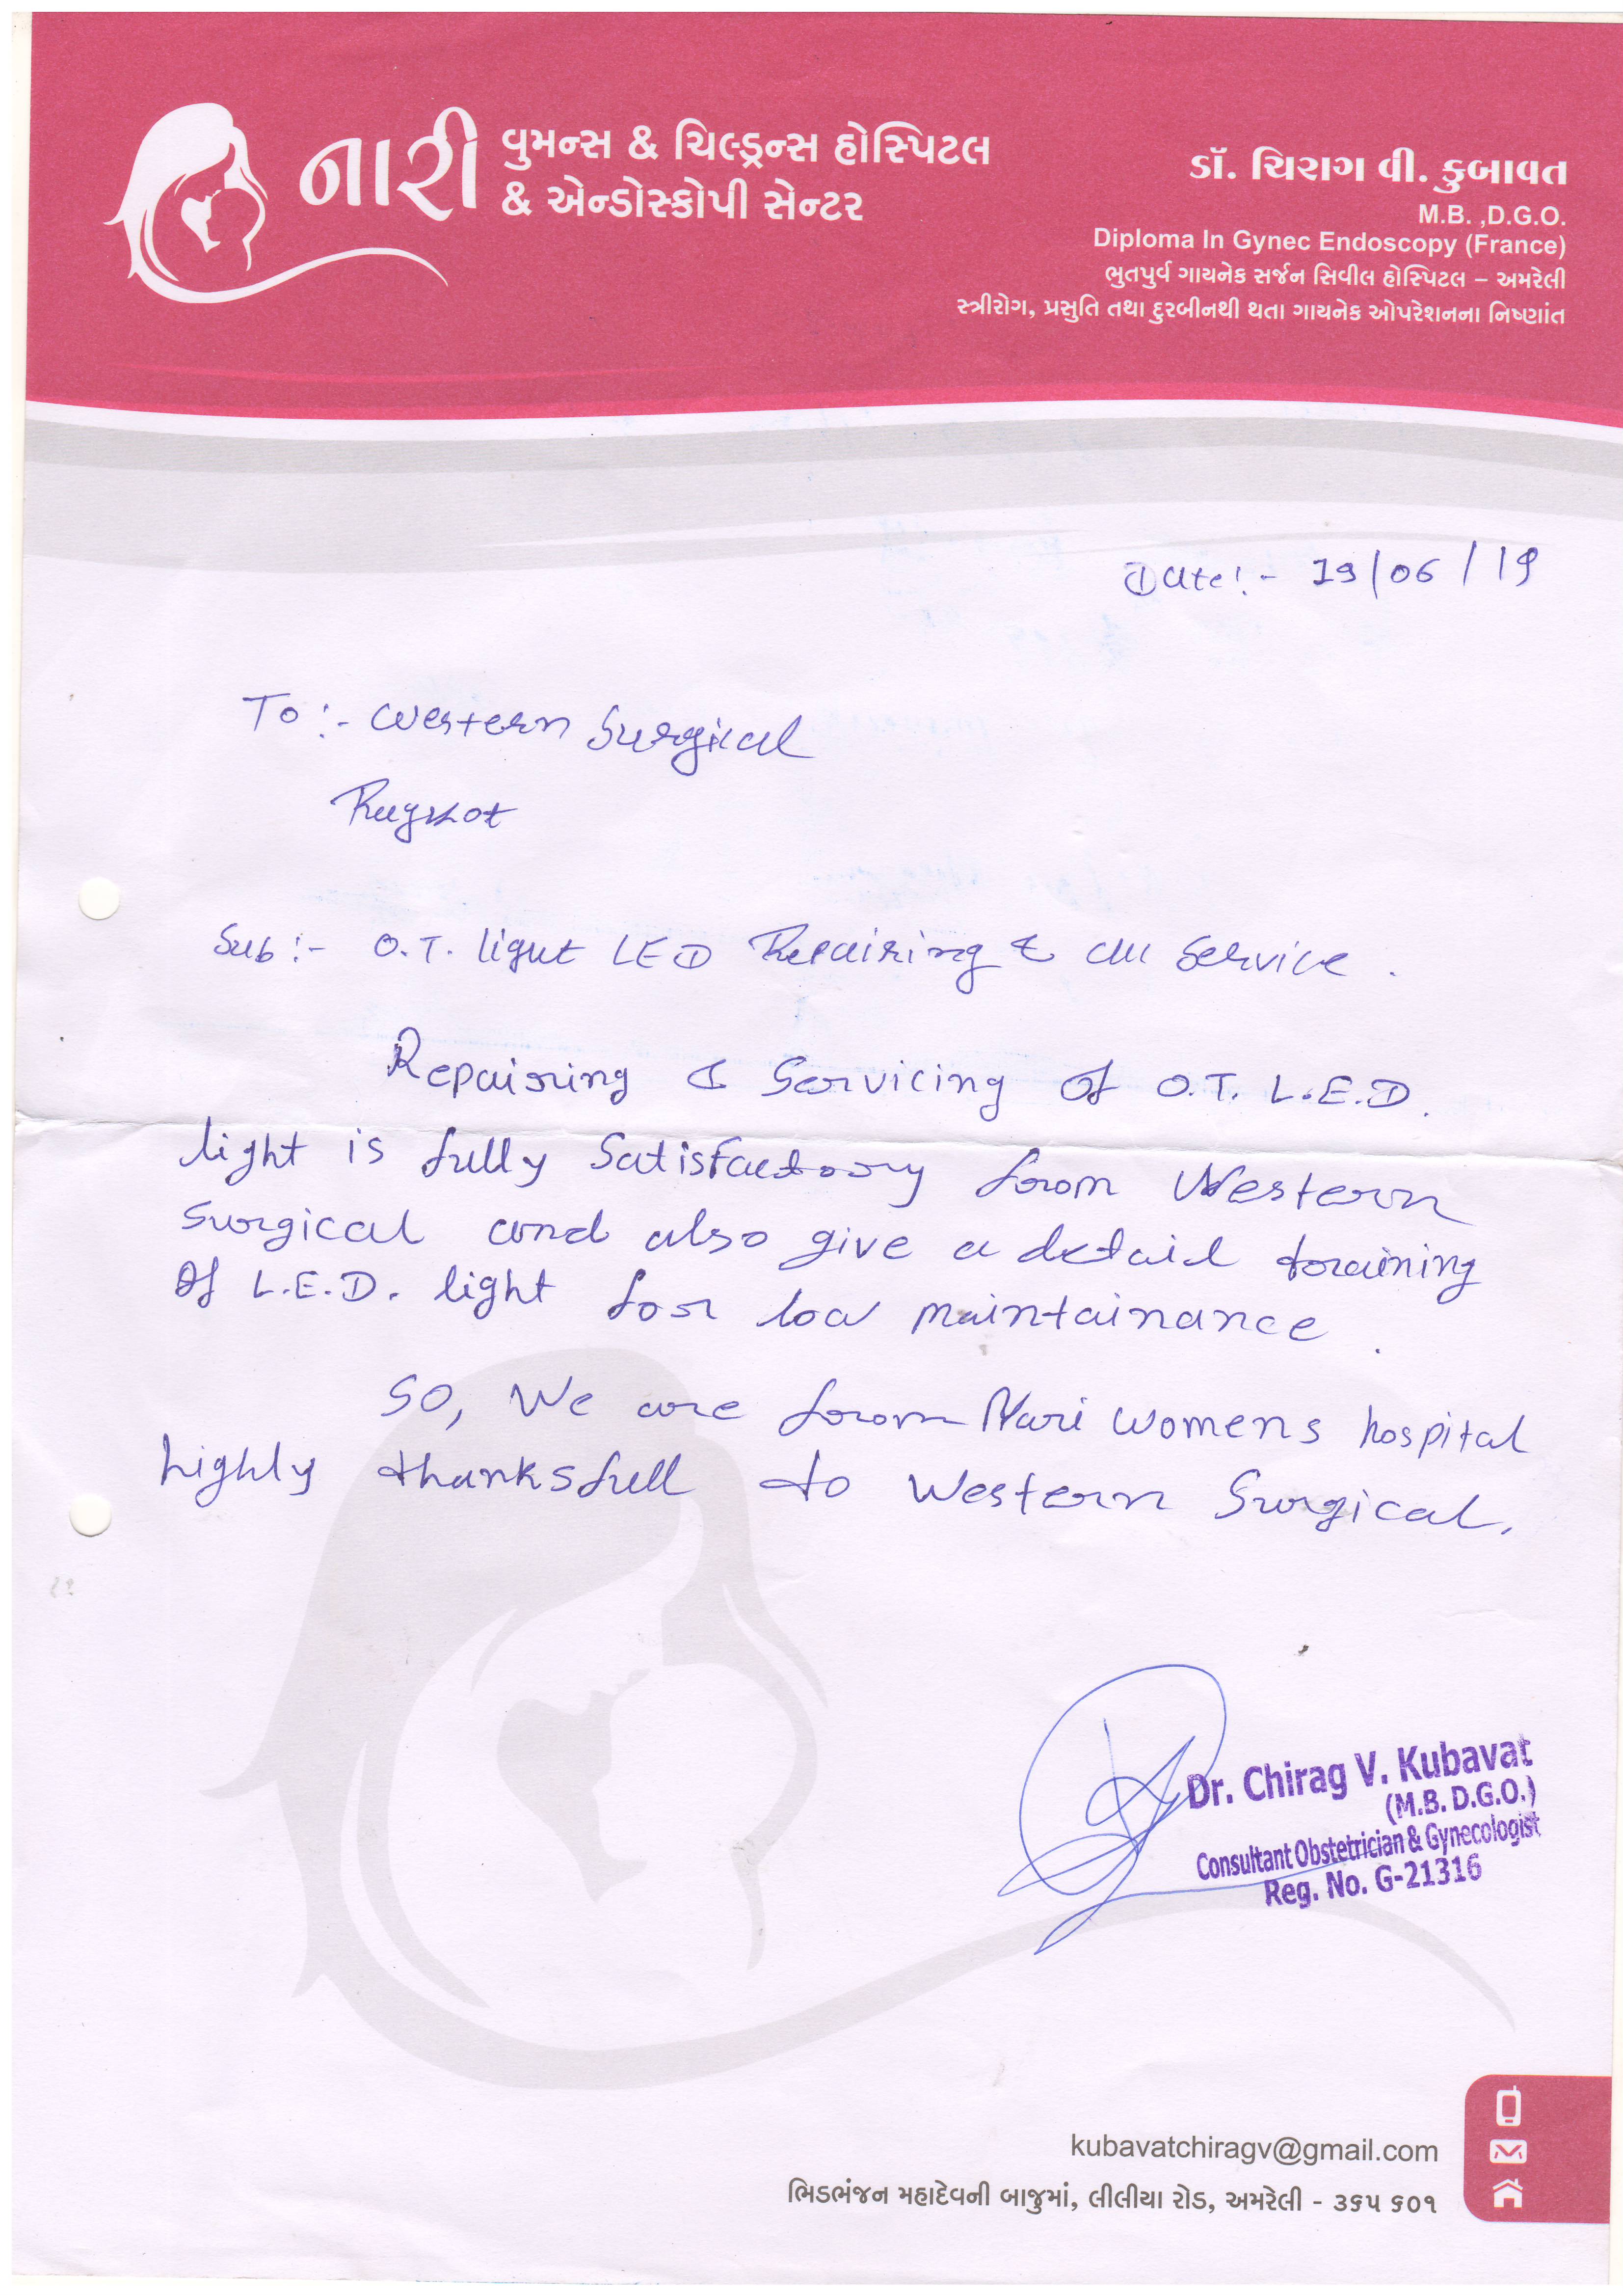 નારી વુમન્સ & ચિલ્ડ્રન્સ હોસ્પિટલ
& એન્ડોસ્કોપી સેન્ટર
ડૉ. ચિરાગ વી. કુબાવત
M.B. ,D.G.O.
Diploma In Gynec Endoscopy (France)
ભુતપુર્વ ગાયનેક સર્જન સિવીલ હોસ્પિટલ – અમરેલી
સ્ત્રીરોગ, પ્રસુતિ તથા દુરબીનથી થતા ગાયનેક ઓપરેશનના નિષ્ણાંત
Date:- 19/06/19
To:- Western Surgical
Rajkot
Sub:- O.T. light LED Repairing & Service.
Repairing & Servicing Of O.T. L.E.D.
light is fully Satisfactory from Western
Surgical and also give a detail training
Of L.E.D. light for low maintainance.
SO, We are from Nari womens hospital
highly thanksfull to Western Surgical.
Dr. Chirag V. Kubavat
(M.B. D.G.O.)
Consultant Obstetrician & Gynecologist
Reg. No. G-21316
kubavatchiragv@gmail.com
ભિડભંજન મહાદેવની બાજુમાં, લીલીયા રોડ, અમરેલી - ૩૬૫ ૬૦૧